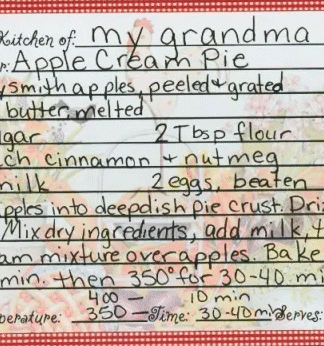 Kitchen of: my grandma
Apple Cream Pie
smith apples, peeled & grated
butter, melted
gar 2 Tbsp flour
ch cinnamon + nutmeg
milk 2 eggs, beaten
pples into deepdish pie crust. Driz
Mix dry ingredients, add milk, &
am mixture over apples. Bake
min. then 350° for 30-40 mi
400 — 10 min
perature: 350 — Time: 30-40 mi Serves: